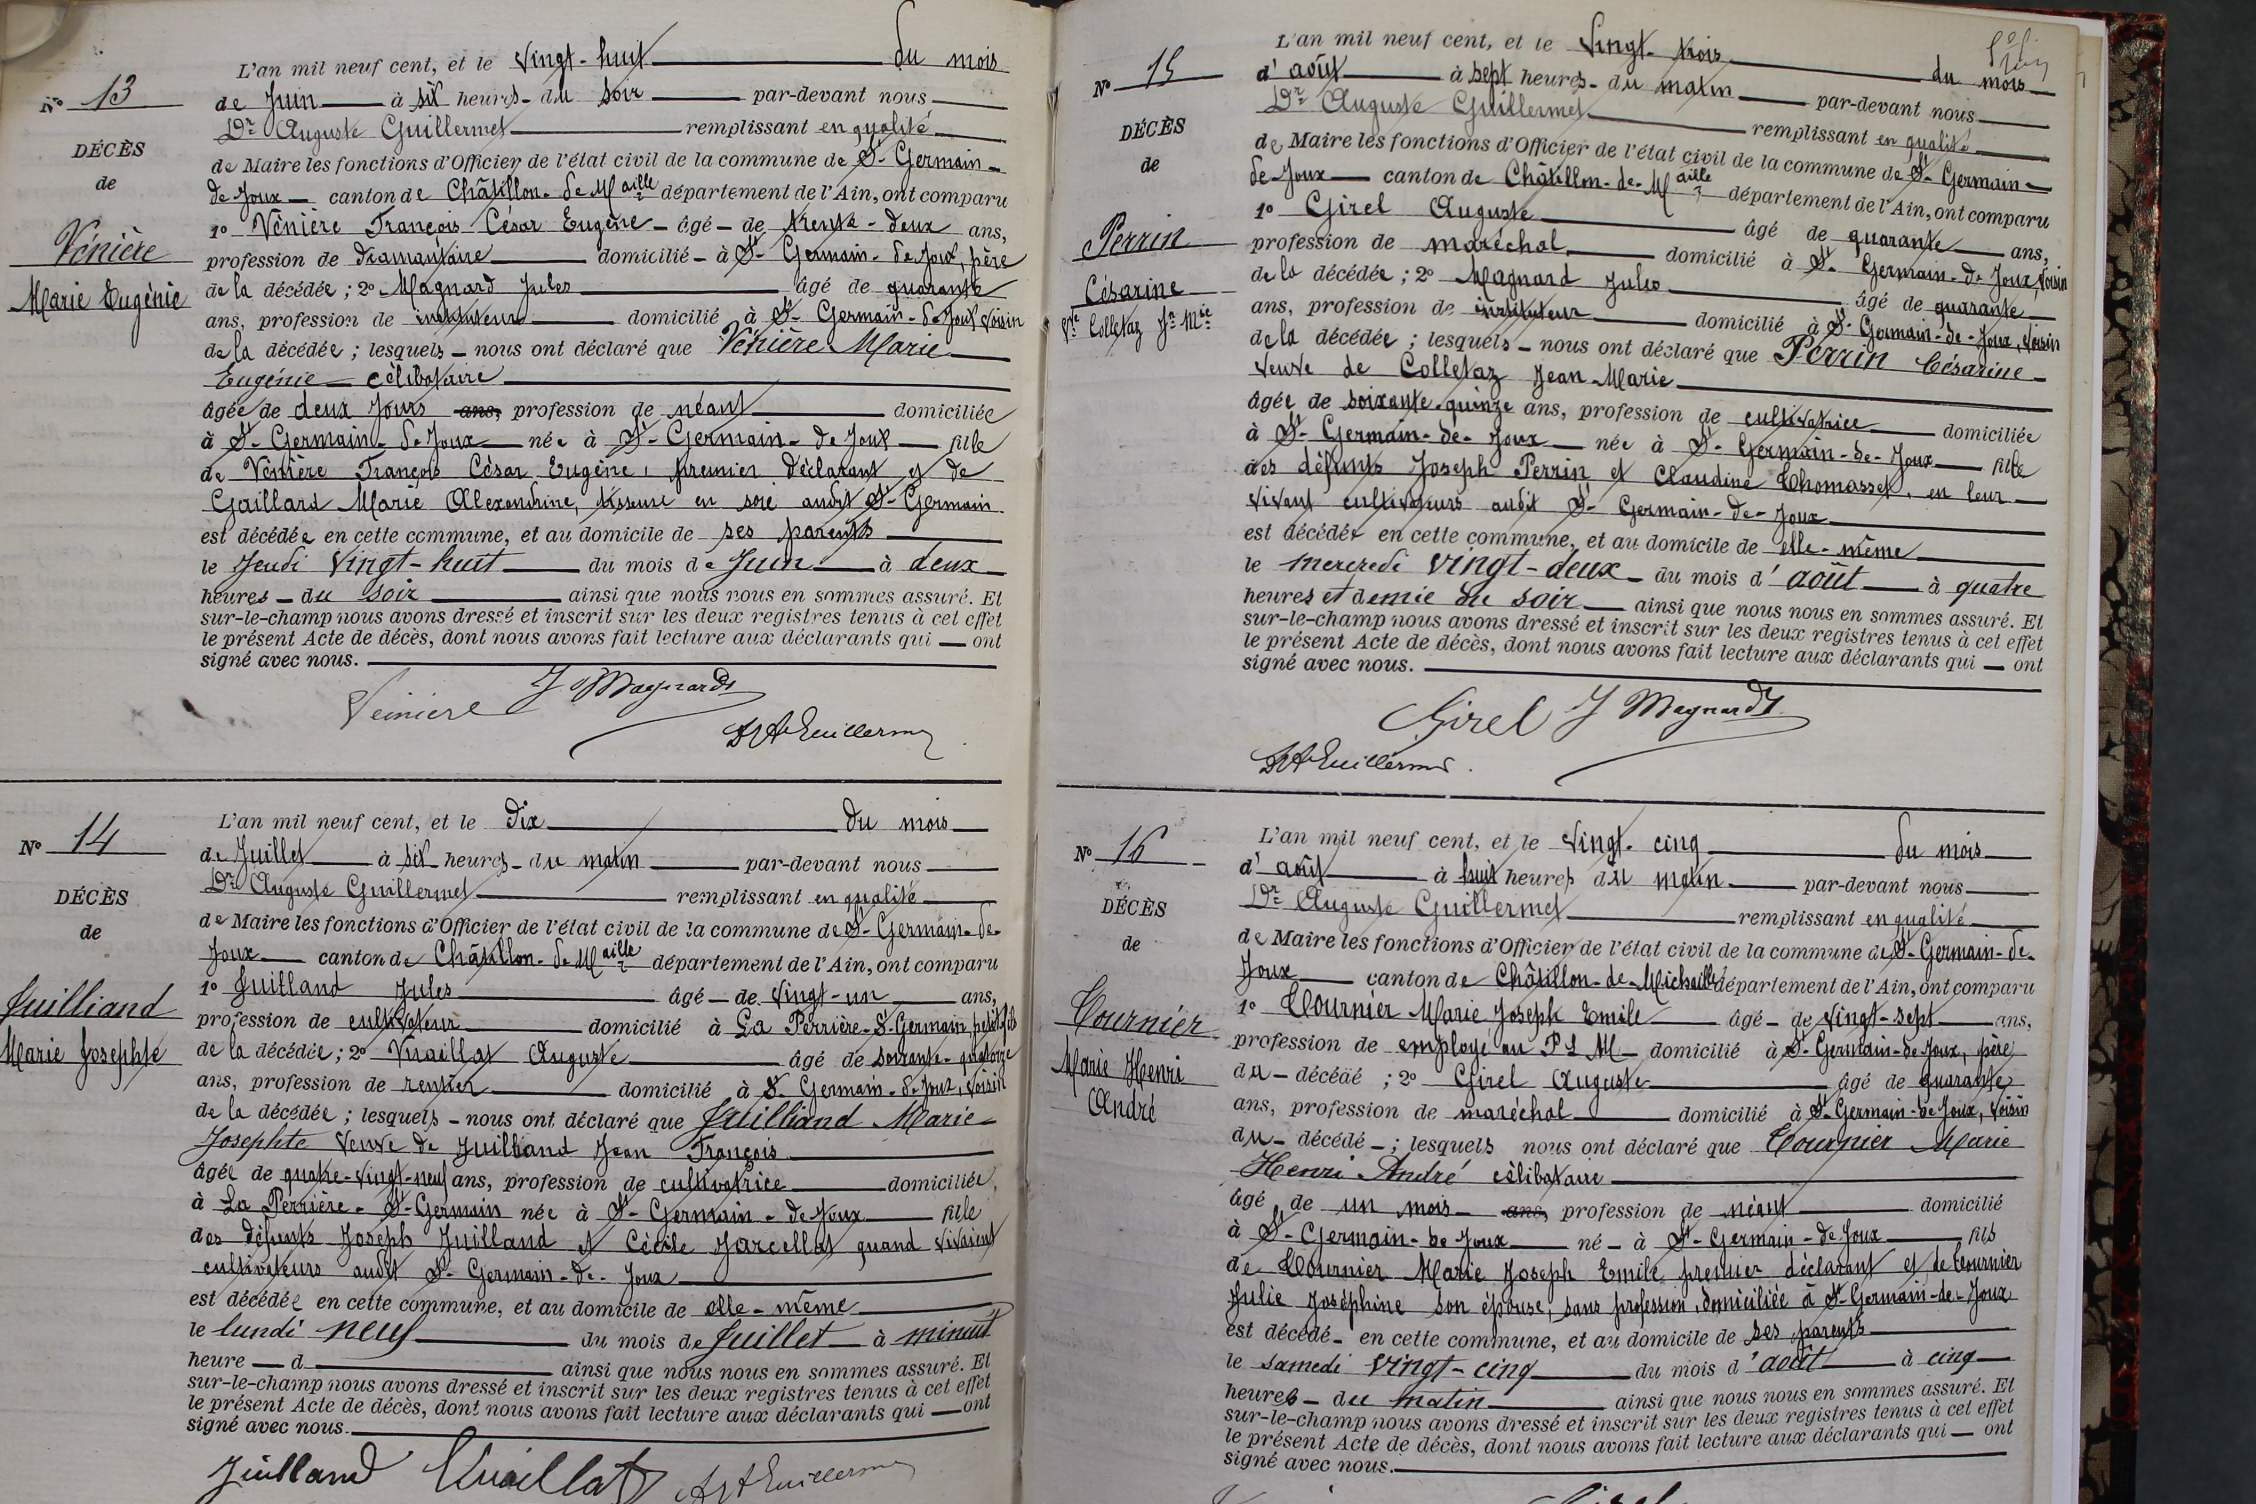 L'an mil neuf cent, et le Vingt-huit du mois
N° 13
de Juin à six heures du soir par-devant nous
Dr Auguste Guillermet remplissant en qualité
DÉCÈS
de Maire les fonctions d'Officier de l'état civil de la commune de St-Germain-
de
de Joux canton de Châtillon-de-Maille département de l'Ain, ont comparu
1° Vénière François César Eugène âgé de trente-deux ans,
Vénière
profession de diamantaire domicilié à St-Germain-de-Joux, père
Marie Eugénie
de la décédée; 2° Magnard Jules âgé de quarante
ans, profession de instituteur domicilié à St-Germain-de-Joux Voisin
de la décédée; lesquels nous ont déclaré que Vénière Marie
Eugénie célibataire
âgée de deux jours ans, profession de néant domiciliée
à St-Germain-de-Joux née à St-Germain-de-Joux fille
de Vénière François César Eugène, premier déclarant et de
Gaillard Marie Alexandrine, tisseuse en soie audit St-Germain
est décédée en cette commune, et au domicile de ses parents
le Jeudi Vingt-huit du mois de Juin à deux
heures du soir ainsi que nous nous en sommes assuré. Et
sur-le-champ nous avons dressé et inscrit sur les deux registres tenus à cet effet
le présent Acte de décès, dont nous avons fait lecture aux déclarants qui ont
signé avec nous.
Veinière J Magnard
Dr A Guillermet
L'an mil neuf cent, et le dix du mois
N° 14
de Juillet à six heures du matin par-devant nous
Dr Auguste Guillermet remplissant en qualité
DÉCÈS
de Maire les fonctions d'Officier de l'état civil de la commune de St-Germain-de-
de
Joux canton de Châtillon-de-Maille département de l'Ain, ont comparu
1° Juilland Jules âgé de vingt-un ans,
Juilliand
profession de cultivateur domicilié à La Perrière-St-Germain, petit fils
Marie Josephte
de la décédée; 2° Vuaillat Auguste âgé de soixante-quatorze
ans, profession de rentier domicilié à St-Germain-de-Joux, Voisin
de la décédée; lesquels nous ont déclaré que Juilliand Marie
Josephte Veuve de Juilland Jean François
âgée de quatre-vingt-neuf ans, profession de cultivatrice domiciliée
à La Perrière-St-Germain née à St-Germain-de-Joux fille
des défunts Joseph Juilland et Cécile Jarcellat, quand vivaient
cultivateurs audit St-Germain-de-Joux
est décédée en cette commune, et au domicile de elle-même
le lundi neuf du mois de Juillet à minuit
heure d ainsi que nous nous en sommes assuré. Et
sur-le-champ nous avons dressé et inscrit sur les deux registres tenus à cet effet
le présent Acte de décès, dont nous avons fait lecture aux déclarants qui ont
signé avec nous.
Juilland Vuaillat Dr A Guillermet
L'an mil neuf cent, et le Vingt-trois du mois
N° 15
d'août à sept heures du matin par-devant nous
Dr Auguste Guillermet remplissant en qualité
DÉCÈS
de Maire les fonctions d'Officier de l'état civil de la commune de St-Germain-
de
de-Joux canton de Châtillon-de-Maille département de l'Ain, ont comparu
1° Girel Auguste âgé de quarante ans,
Perrin
profession de maréchal domicilié à St-Germain-de-Joux, Voisin
Césarine
de la décédée; 2° Magnard Jules âgé de quarante
Vve Colletaz Jn Mie
ans, profession de instituteur domicilié à St-Germain-de-Joux, Voisin
de la décédée; lesquels nous ont déclaré que Perrin Césarine
Veuve de Colletaz Jean-Marie
âgée de soixante-quinze ans, profession de cultivatrice domiciliée
à St-Germain-de-Joux née à St-Germain-de-Joux fille
des défunts Joseph Perrin et Claudine Thomasset, en leur
vivant cultivateurs audit St-Germain-de-Joux
est décédée en cette commune, et au domicile de elle-même
le mercredi vingt-deux du mois d'août à quatre
heures et demie du soir ainsi que nous nous en sommes assuré. Et
sur-le-champ nous avons dressé et inscrit sur les deux registres tenus à cet effet
le présent Acte de décès, dont nous avons fait lecture aux déclarants qui ont
signé avec nous.
Girel J Magnard
Dr A Guillermet
L'an mil neuf cent, et le Vingt-cinq du mois
N° 16
d'août à huit heures du matin par-devant nous
Dr Auguste Guillermet remplissant en qualité
DÉCÈS
de Maire les fonctions d'Officier de l'état civil de la commune de St-Germain-de-
de
Joux canton de Châtillon-de-Michaille département de l'Ain, ont comparu
1° Tournier Marie Joseph Emile âgé de vingt-sept ans,
Tournier
profession de employé au P L M domicilié à St-Germain-de-Joux, père
Marie Henri
du décédé; 2° Girel Auguste âgé de quarante
André
ans, profession de maréchal domicilié à St-Germain-de-Joux, Voisin
du décédé; lesquels nous ont déclaré que Tournier Marie
Henri André célibataire
âgé de un mois ans, profession de néant domicilié
à St-Germain-de-Joux né à St-Germain-de-Joux fils
de Tournier Marie Joseph Emile premier déclarant et de Tournier
Julie Joséphine son épouse, sans profession, domiciliée à St-Germain-de-Joux
est décédé en cette commune, et au domicile de ses parents
le samedi vingt-cinq du mois d'août à cinq
heures du matin ainsi que nous nous en sommes assuré. Et
sur-le-champ nous avons dressé et inscrit sur les deux registres tenus à cet effet
le présent Acte de décès, dont nous avons fait lecture aux déclarants qui ont
signé avec nous.